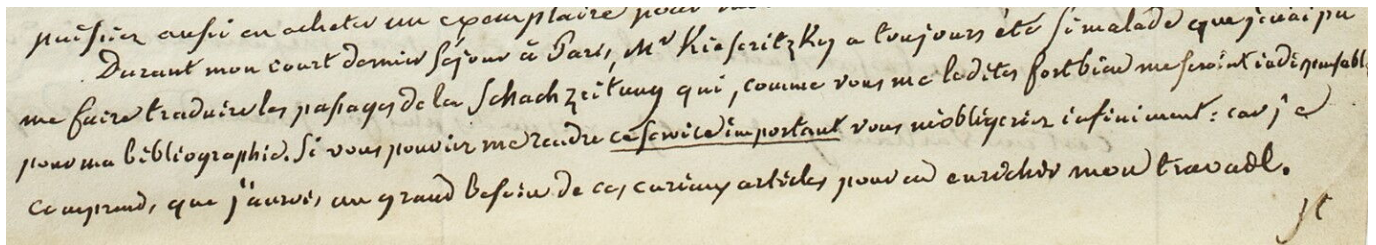 puissiez aussi en acheter un exemplaire pour
Durant mon court dernier séjour à Paris, Mr Kieseritzky a toujours été si malade que j'ai pu
me faire traduire les passages de la Schachzeitung qui, comme vous me le dites fort bien me seroint indispensabl
pour ma bibliographie. Si vous pouviez me rendre ce service important vous m'obligeriez infiniment : car je
comprends, que j'aurois un grand besoin de ces curieux articles pour en enrichir mon travail.